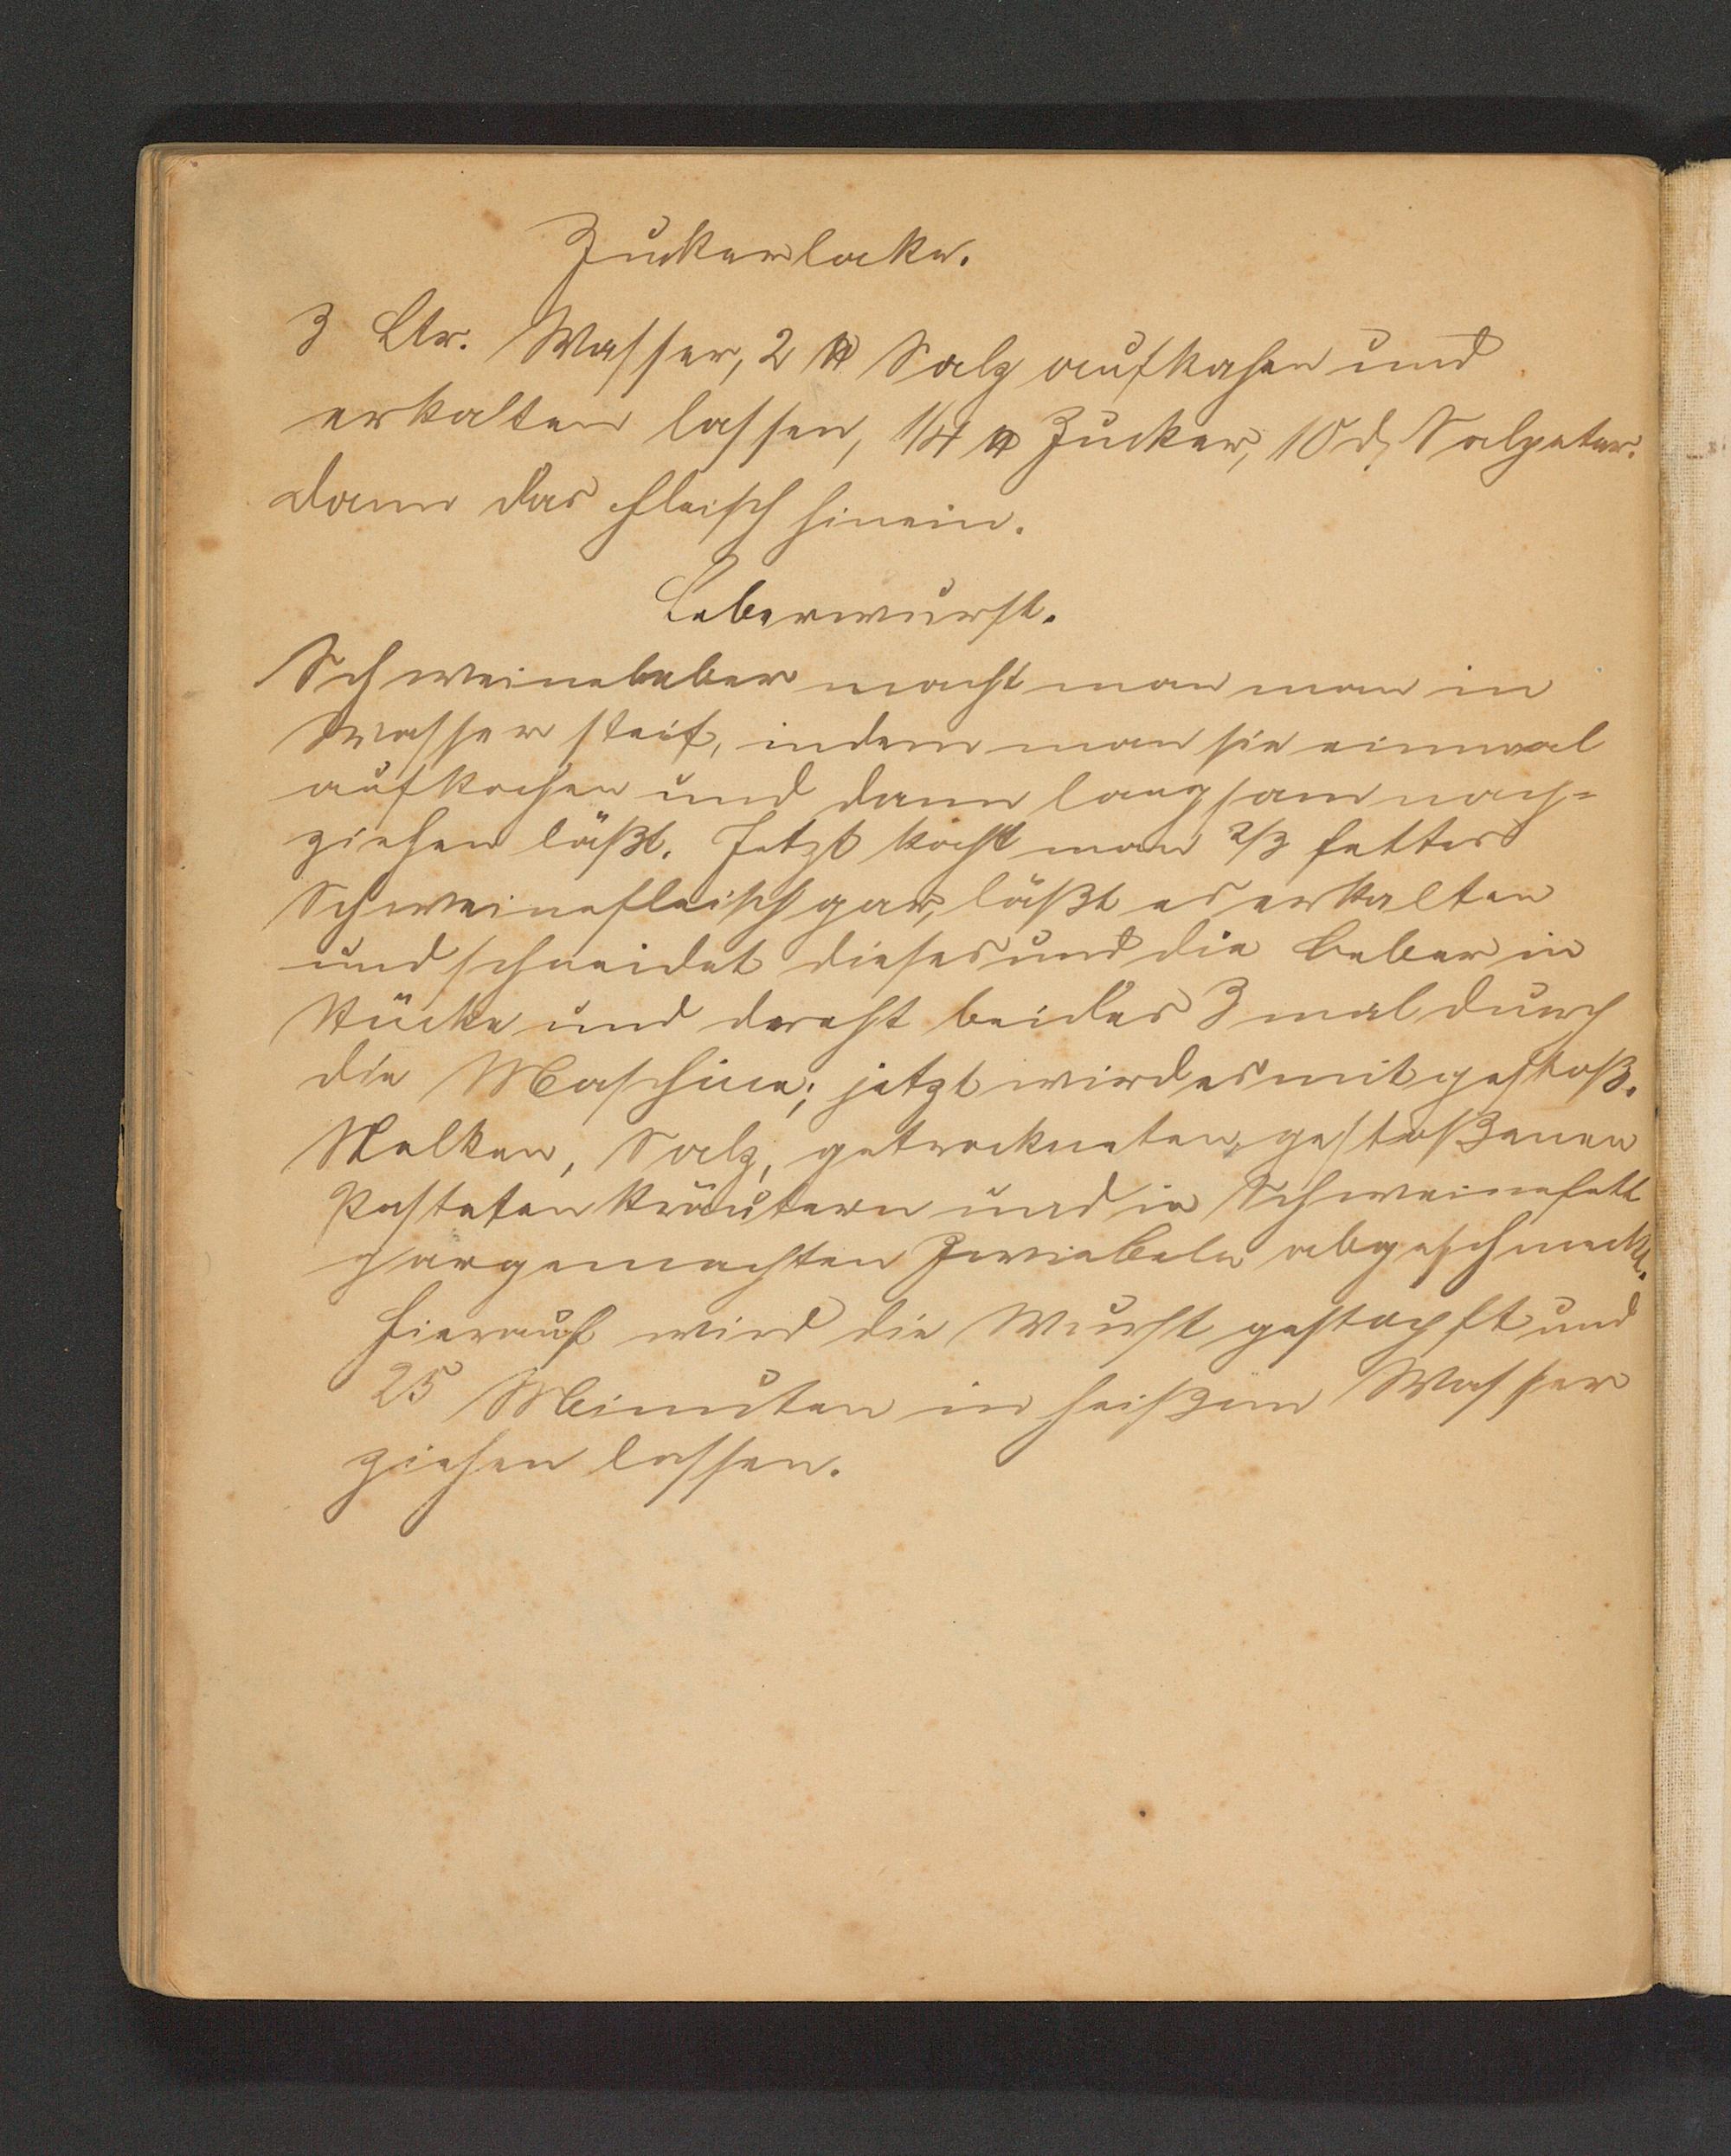 Zuckerlake.
3 Ltr. Wasser, 2 ℔ Salz aufkochen und
erkalten lassen, 1/4 ℔ Zucker, 10 d, Salpeter.
dann das Fleisch hinein.
Leberwurst.
Schweineleber macht man man in
Wasser steif, indem man sie einmal
aufkochen und dann langsam nach=
ziehen läßt. Jetzt kocht man 2/3 fettes
Schweinefleisch gar, läßt es erkalten
und schneidet dieses und die Leber in
Stücke und dreht beides 3 mal durch
die Maschine; jetzt wird es mit gestoß.
Nelken, Salz, getrockneten, gestoßenen
Pasteten Kräutern und in Schweinefett
gargemachten Zwiebeln abgeschmeckt.
Hierauf wird die Wurst gestopft und
25 Minuten in heißem Wasser
ziehen lassen.